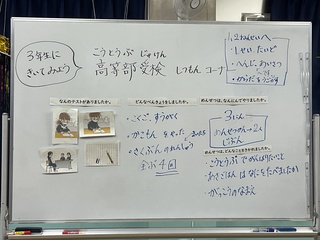 3年生に
きいてみよう
こうとうぶ じゅけん
高等部受検 しつもん コーナー
・しせい、たいど
・へんじ、あいさつ
なんのテストがありましたか。
どんなべんきょうをしましたか。
・こくご、すうがく
・かこもんをやった
・さくぶんのれんしゅう
めんせつは、なんにんでやりましたか。
3にん
めんせつかん→2人
じぶん
めんせつは、どんなことをきかれましたか。
・こうとうぶでがんばりたいこと
・あさごはんはなにをたべましたか
・がっこうのなまえ